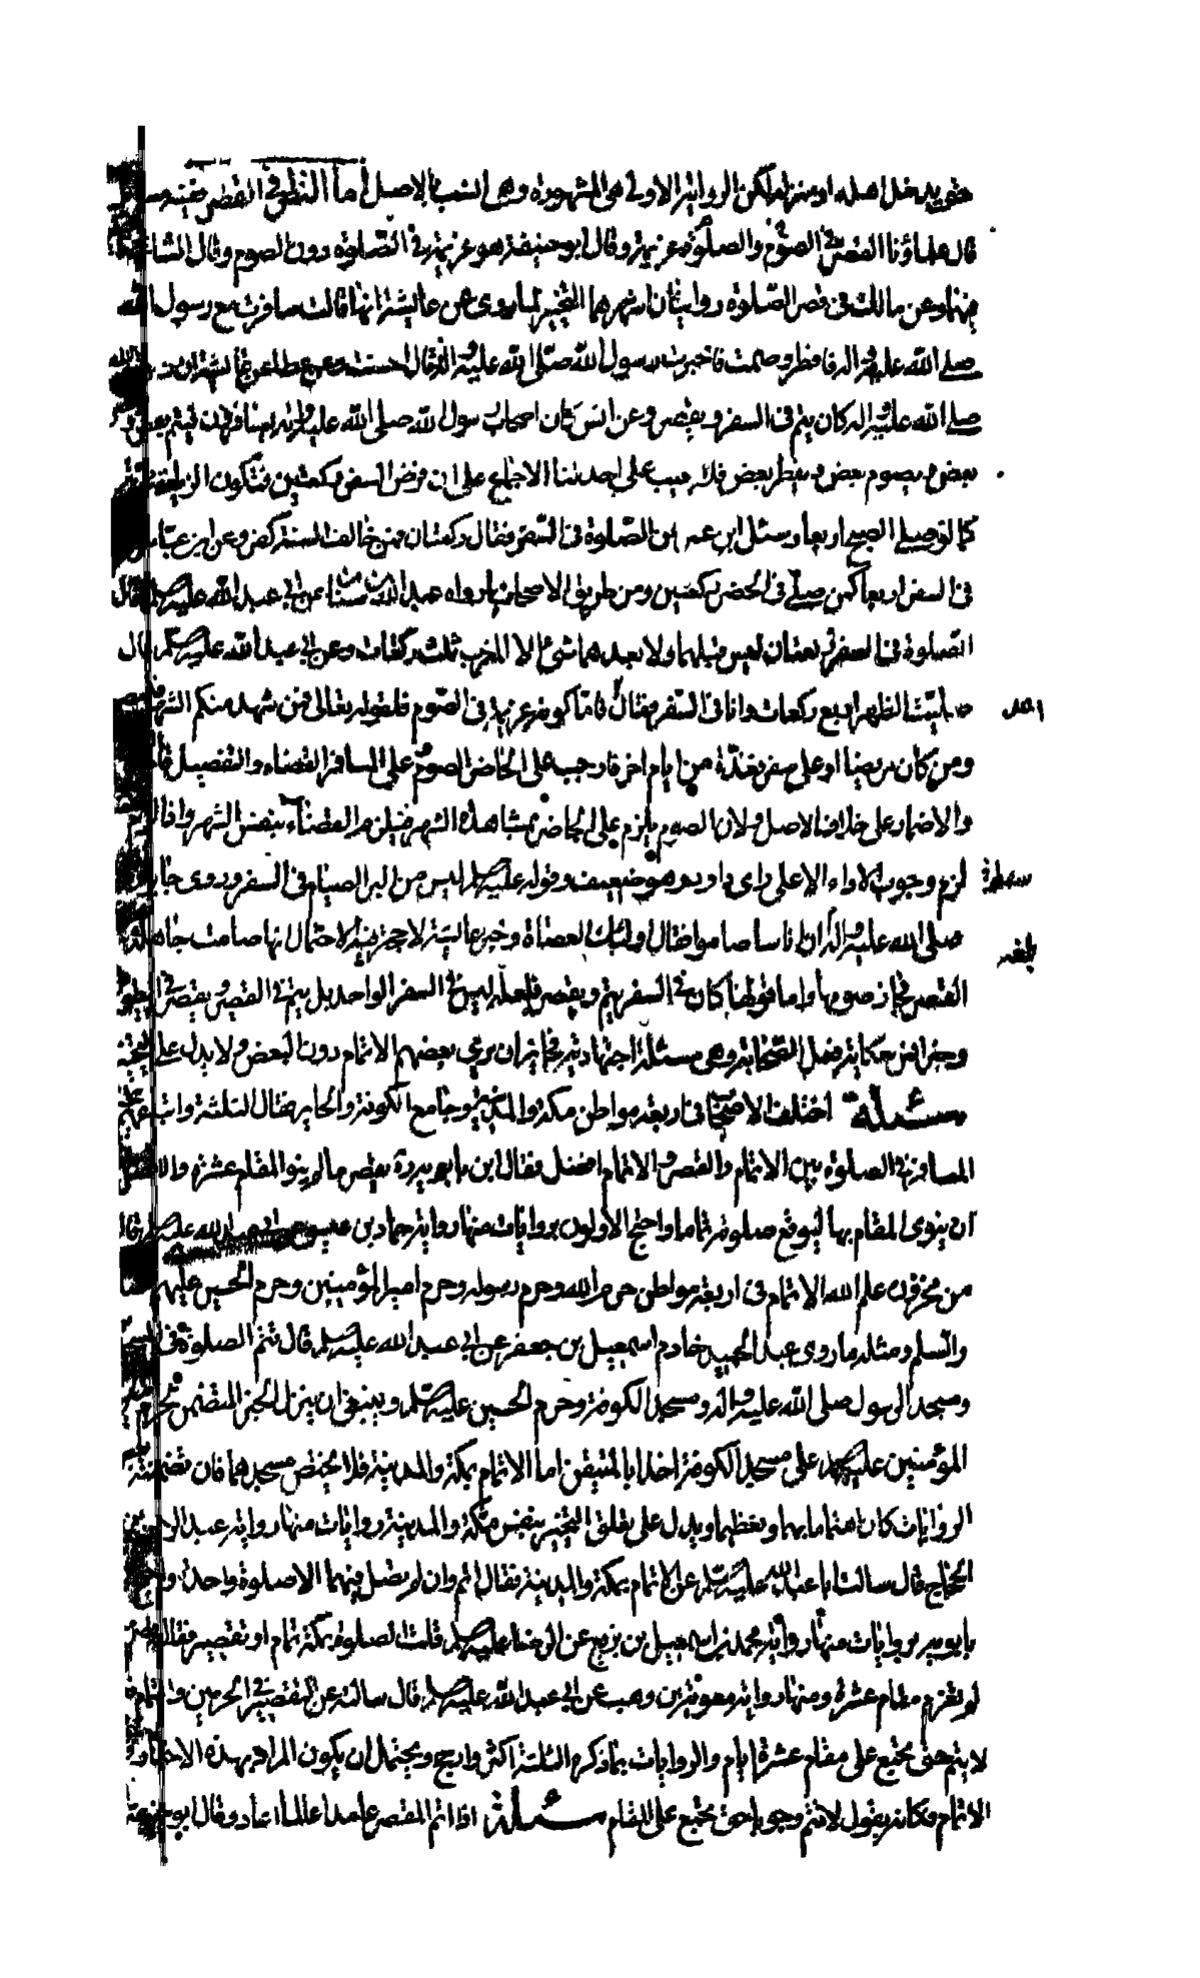 حتى يدخل اهله او منزله لكن الرواية الاولى هى المشهورة وهى انسب بالاصل اما النظر فى القصر ففيه مسائل
قال علماؤنا القصر فى الصوم والصلوة عزيمة وقال ابو حنيفة هو عزيمة فى الصلوة دون الصوم وقال الشافعى
وعن مالك فى قصر الصلوة روايتان اشهرهما التخيير لما روى عن عايشة انها قالت سافرت مع رسول الله
صلى الله عليه واله فافطر وصمت فاخبرت رسول الله صلى الله عليه واله قال احسنت وعن عطا عن عايشة ان رسول الله
صلى الله عليه واله كان يتم فى السفر ويقصر وعن انس كان اصحاب رسول الله صلى الله عليه واله يسافرون فيتم بعض و
بعض ويصوم بعض ويفطر بعض فلا يعيب على احد لنا الاجماع على ان فرض السفر ركعتين فتكون الزيادة
كما لو صلى الصبح اربعا وسئل ابن عمر عن الصلوة فى السفر فقال ركعتان فمن خالف السنة كفر وعن ابن عباس
فى السفر اربعا كمن صلى فى الحضر ركعتين ومن طريق الاصحاب ما رواه عبد الله بن سنان عن ابى عبد الله عليه السلم قال
الصلوة فى السفر ركعتان ليس قبلهما ولا بعدهما شئ الا المغرب ثلث ركعات وعن ابى عبد الله عليه السلم قال
صليت الظهر اربع ركعات وانا فى السفر فقال اعد فاما كونه عزيمة فى الصوم فلقوله تعالى فمن شهد منكم الشهر فليصمه
ومن كان مريضا او على سفر فعدة من ايام اخر فاوجب على الحاضر الصوم وعلى المسافر القضاء والتفصيل
والاضمار على خلاف الاصل ولان الصوم يلزم على الحاضر بمشاهدة الشهر فيلزم القضاء بنفس السفر واذا
لزم وجوب الاداء الا على راى داود وهو ضعيف وقوله عليه السلم ليس من البر الصيام فى السفر وروى جابر
صلى الله عليه واله ان ناسا صاموا فقال اولئك العصاة وخبر عايشة لا حجة فيه لاحتمال انها صامت جاهلة
القصر فجاز صومها واما قولها كان فى السفر يتم ويقصر فلعله ليس فى السفر الواحد بل يتم فى القصير ويقصر فى الطويل
وخبر انس حكاية فعل الصحابة وهى مسئلة اجتهادية فجايز ان يرى بعضهم الاتمام دون البعض ولا يدل على
مسئلة اختلف الاصحاب فى اربعة مواطن مكة والمدينة وجامع الكوفة والحاير فقال الثلثة واتباعهم
المسافر فى الصلوة بين الاتمام والقصر والاتمام افضل وقال ابن بابويه ره يقصر ما لم ينو المقام عشرة والافضل
ان ينوى المقام بها ليوقع صلوته تماما واحتج الاولون بروايات منها رواية حماد بن عيسى عن ابى عبد الله عليه السلم قال
من مخزون علم الله الاتمام فى اربعة مواطن حرم الله وحرم رسوله وحرم امير المؤمنين وحرم الحسين عليهم
والسلم ومثله ما روى عبد الحميد خادم اسمعيل بن جعفر عن ابى عبد الله عليه السلم قال تتم الصلوة فى
ومسجد الرسول صلى الله عليه واله ومسجد الكوفة وحرم الحسين عليه السلم وينبغى ان ينزل الخبر المتضمن لحرم امير
المؤمنين عليه السلم على مسجد الكوفة اخذا بالمتيقن اما الاتمام بمكة والمدينة فلا يختص مسجدهما فان تضمنته
الروايات كان اهتماما بهما وتعظيما ويدل على تعلق التخيير بنفس مكة والمدينة روايات منها رواية عبد الرحمن بن
الحجاج قال سالت ابا عبد الله عليه السلم عن الاتمام بمكة والمدينة فقال اتم وان لم تصل فيهما الا صلوة واحدة واحتج ابن
بابويه بروايات منها رواية محمد بن اسمعيل بن بزيع عن الرضا عليه السلم قلت الصلوة بمكة تمام او تقصير فقال قصر
لم تعزم مقام عشرة ومنها رواية معوية بن وهب عن ابى عبد الله عليه السلم قال سالته عن التقصير فى الحرمين والتمام
لا يتم حتى يجمع على مقام عشرة ايام والروايات بما ذكره الثلثة اكثر وارجح ويحتمل ان يكون المراد بهذه الاخبار
الاتمام فكانه يقول لا تتم وجوبا حتى تجمع على المقام مسئلة اذا اتم المقصر عامدا عالما اعاد وقال ابو حنيفة